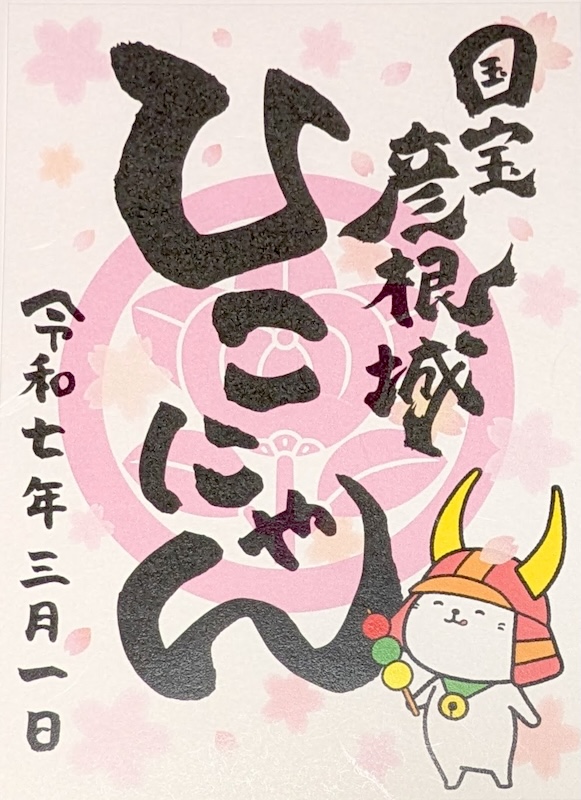 国宝
彦根城
ひこにゃん
令和七年三月一日